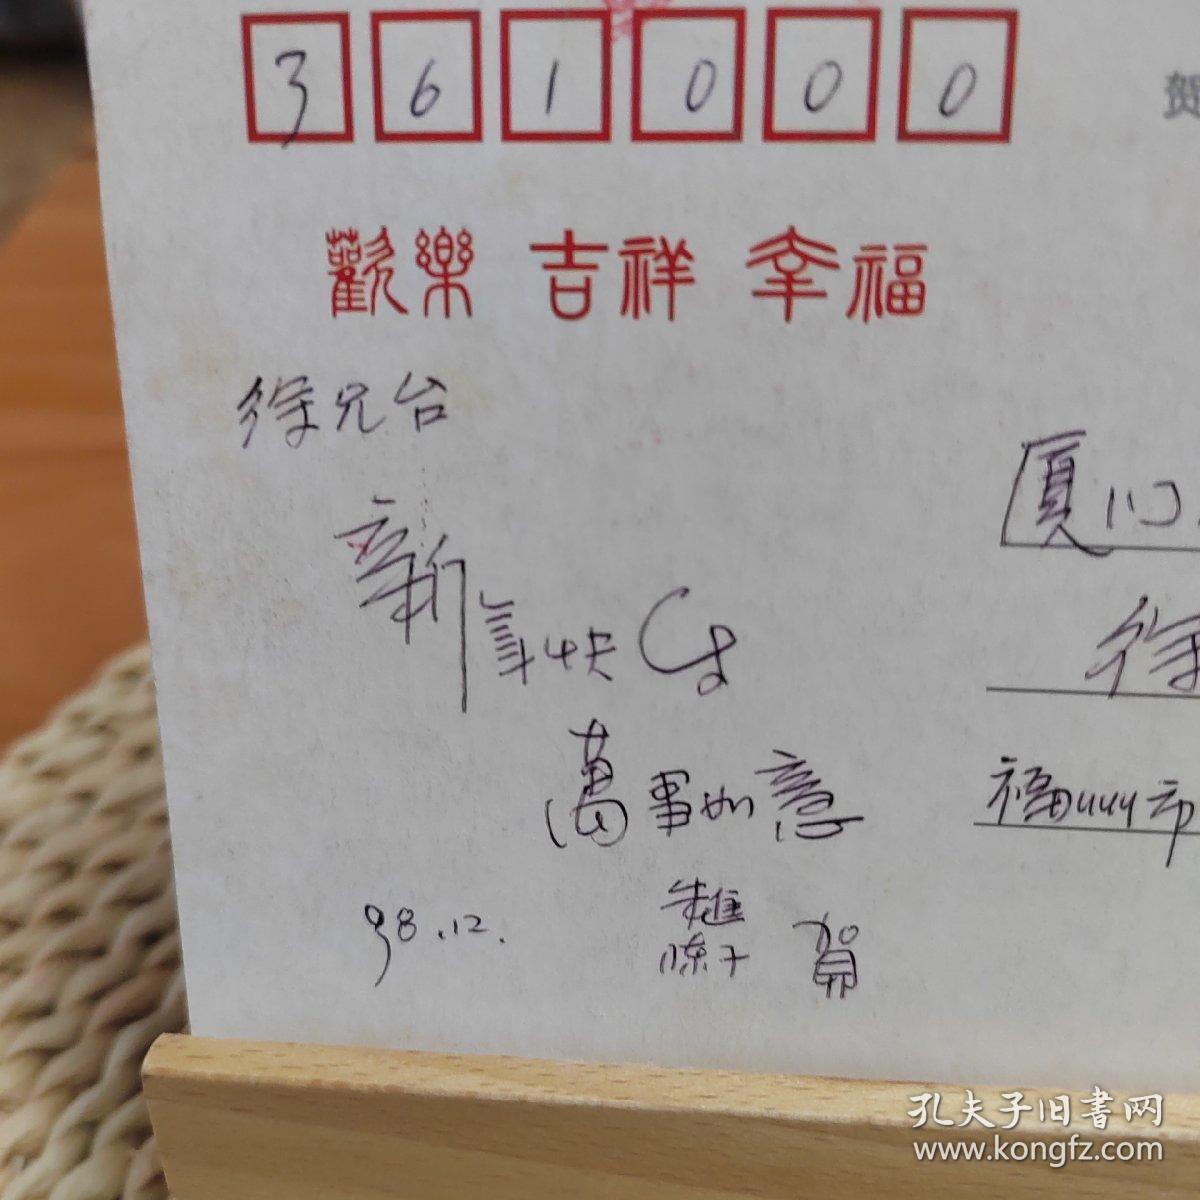 361000
贺
歡樂 吉祥 幸福
徐兄台
新年快乐
萬事如意
98.12.
賀
厦门
徐
福州市
孔夫子旧书网
www.kongfz.com